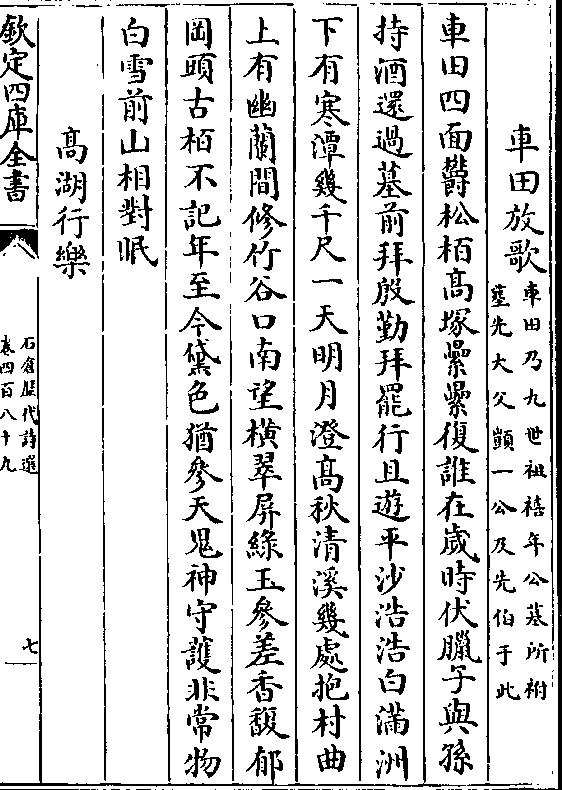 車田放歌車田乃九世祖禧年公墓所祔
塟先大父顗一公及先伯于此
車田四面鬱松栢高塚纍纍復誰在歲時伏臘子與孫
持酒還過墓前拜殷勤拜罷行且遊平沙浩浩白滿洲
下有寒潭幾千尺一天明月澄高秋清溪幾處抱村曲
上有幽蘭間修竹谷口南望橫翠屏綠玉參差香馥郁
岡頭古栢不記年至今黛色猶參天鬼神守護非常物
白雪前山相對眠
高湖行樂
欽定四庫全書
石倉歷代詩選
卷四百八十九
七